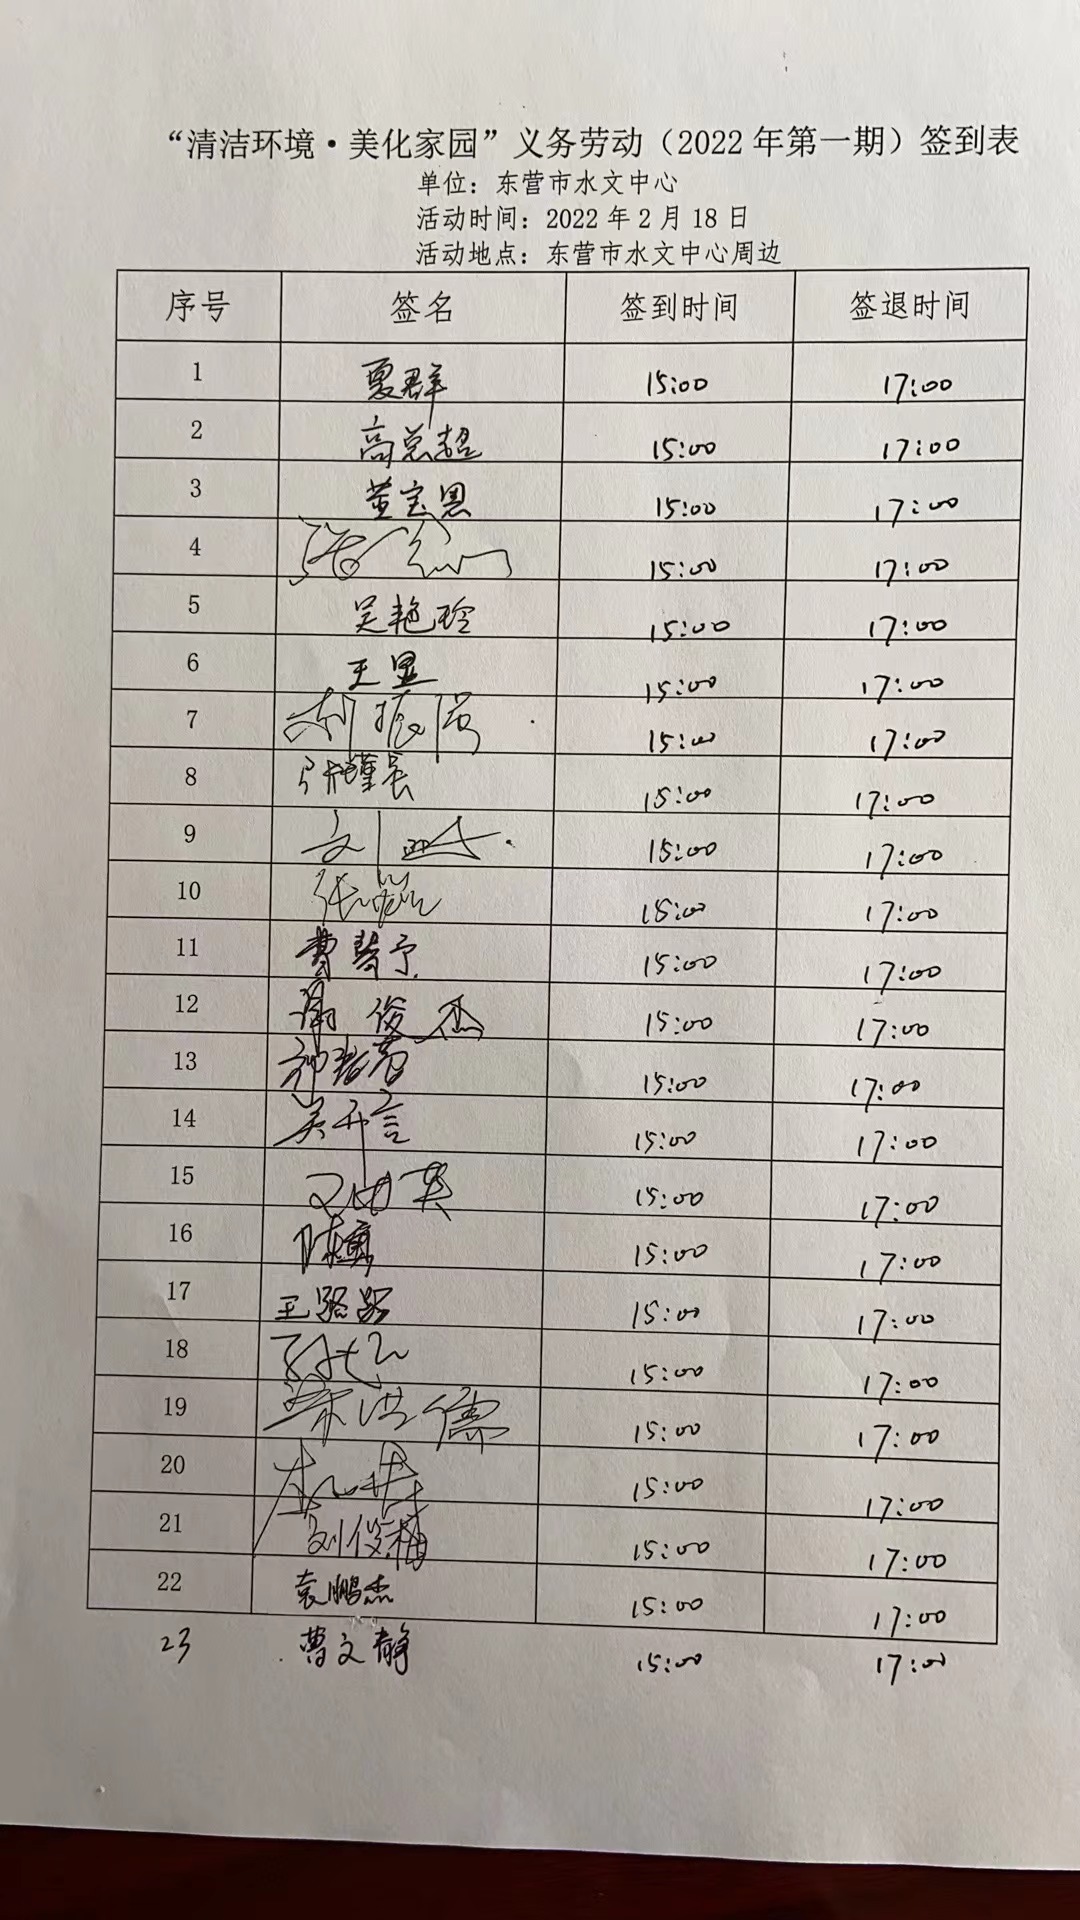 “清洁环境·美化家园”义务劳动（2022年第一期）签到表
单位：东营市水文中心
活动时间：2022年2月18日
活动地点：东营市水文中心周边
序号 签名 签到时间 签退时间
1 夏群 15:00 17:00
2 高总超 15:00 17:00
3 董宝恩 15:00 17:00
4 15:00 17:00
5 吴艳玲 15:00 17:00
6 王显 15:00 17:00
7 刘振 15:00 17:00
8 15:00 17:00
9 刘 15:00 17:00
10 张 15:00 17:00
11 曹梦予 15:00 17:00
12 谢俊杰 15:00 17:00
13 15:00 17:00
14 吴开言 15:00 17:00
15 15:00 17:00
16 陈 15:00 17:00
17 王路路 15:00 17:00
18 15:00 17:00
19 洪德 15:00 17:00
20 15:00 17:00
21 刘俊楠 15:00 17:00
22 袁鹏杰 15:00 17:00
23 曹文静 15:00 17:00